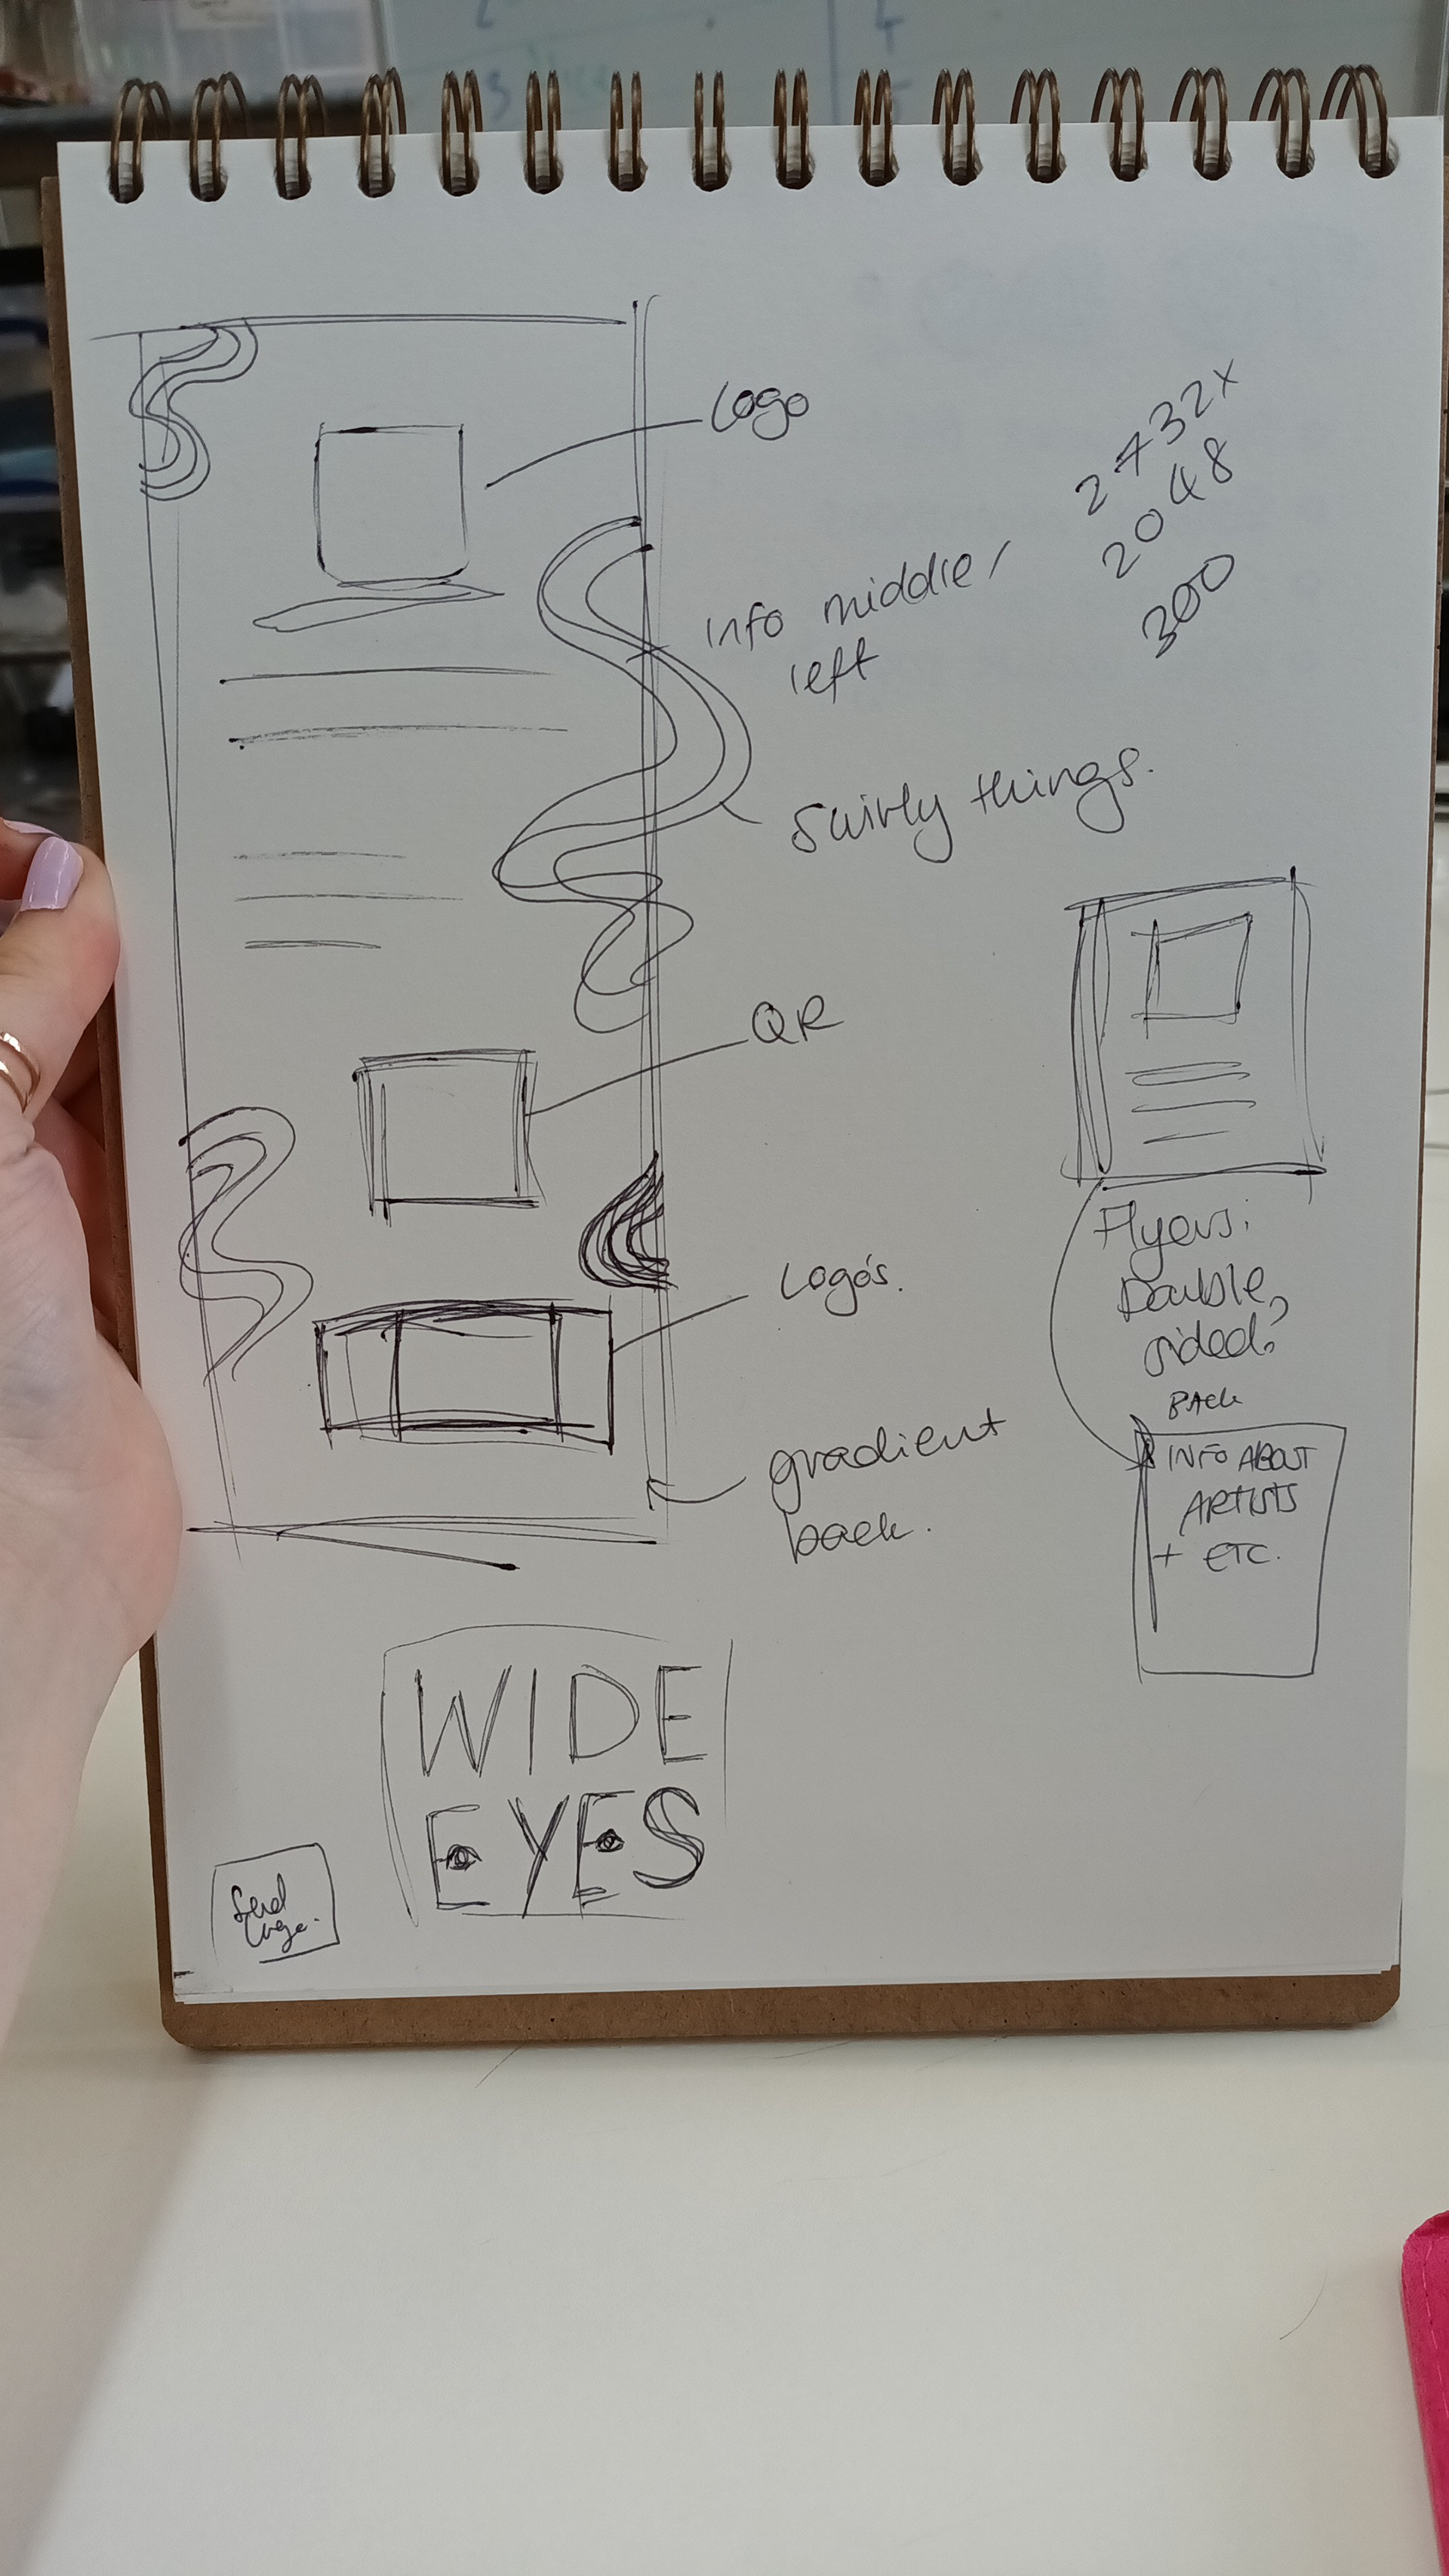 Logo
2732x
2048
300
info middle/
left
Swirly things.
QR
Logo's.
gradient
back.
Flyers:
Double
sided?
BACK
INFO ABOUT
ARTISTS
+ ETC.
WIDE
EYES